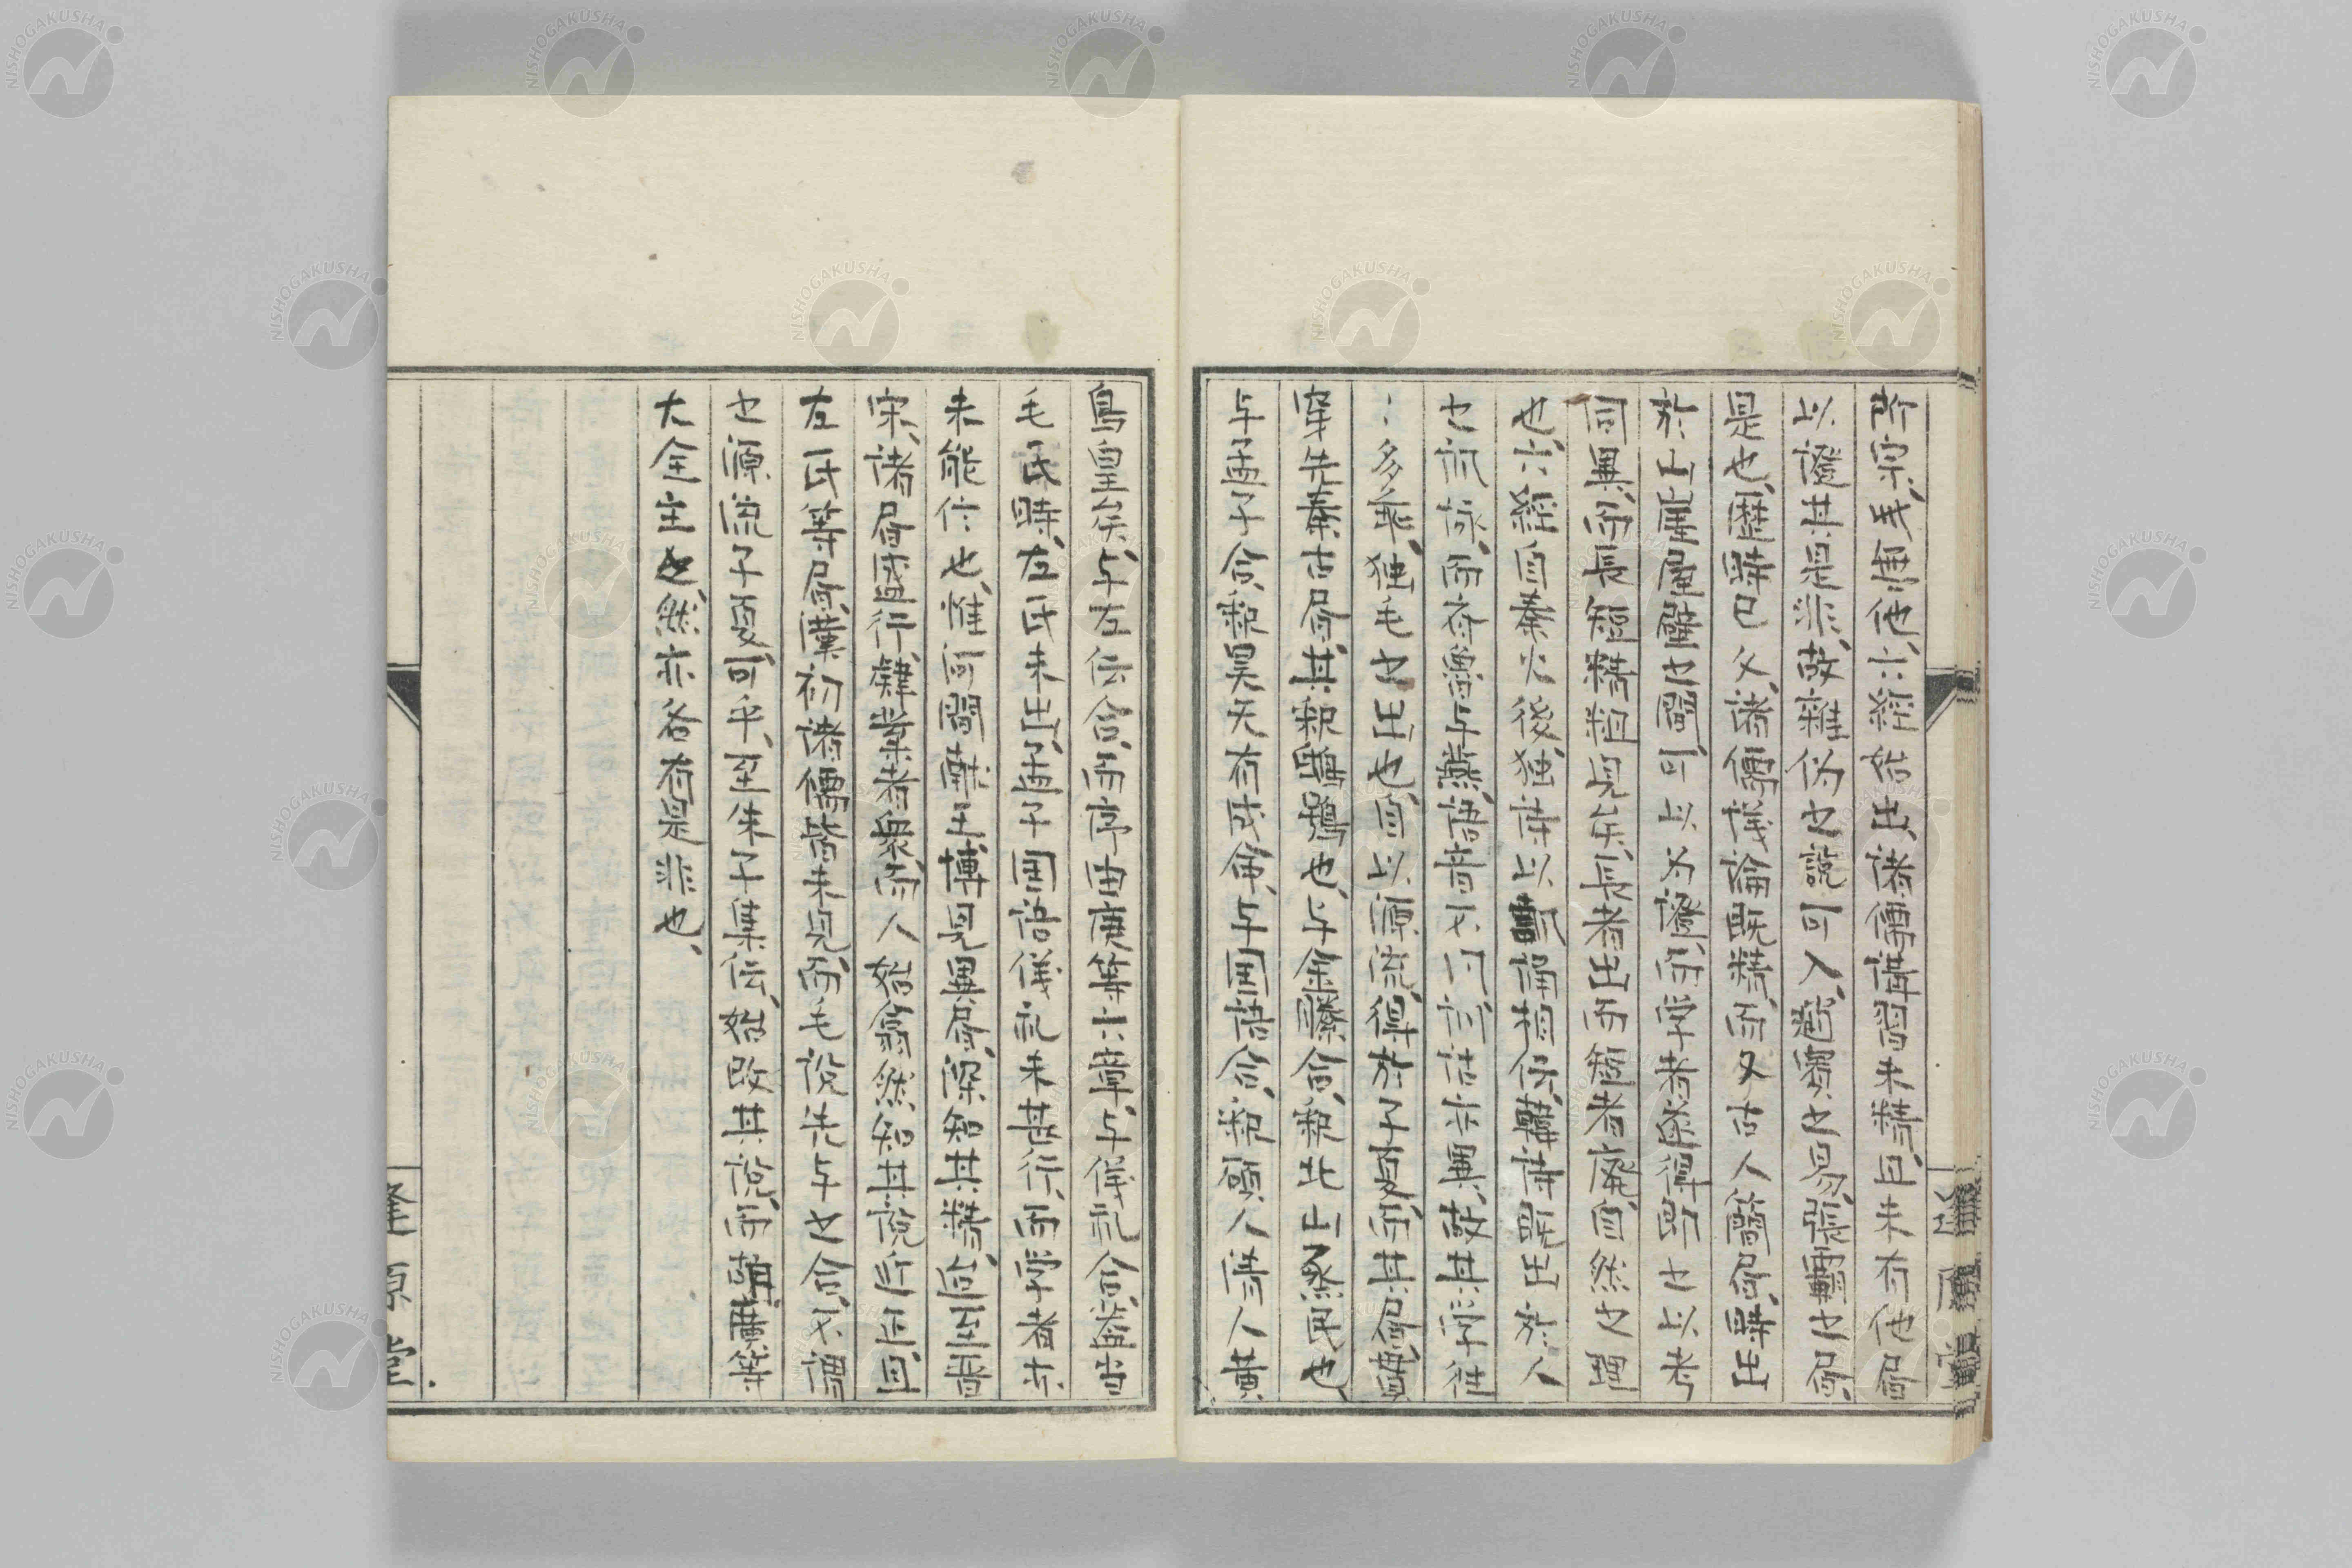 所宗、或無他、六経始出、諸儒講習未精、且未有他書
以證其是非、故雜偽之說可入、適賓之易、張霸之書、
是也、歴時已久、諸儒議論既精、而又古人簡書、時出
於山崖屋壁之間、可以為證、而学者遂得即之以考
同異、而長短精粗見矣、長者出而短者廃、自然之理
也、六経自秦火後、独詩以諷誦相伝、韓詩既出於人
之諷詠、而斉魯与燕語音不同、訓詁亦異、故其学往
〻多乖、独毛之出也、自以源流得於子夏、而其書貫
穿先秦古書、其釈鴟鴞也、与金縢合、釈北山烝民也、
与孟子合、釈昊天有成命、与国語合、釈碩人清人黄
鳥皇矣、与左伝合、而序由庚等六章、与儀礼合、蓋当
毛氏時、左氏未出、孟子国語儀礼未甚行、而学者亦
未能信也、惟河間献王博見異書、深知其精、迨至晋
宋、諸書盛行、肄業者衆、而人始翕然知其説近正、且
左氏等書、漢初諸儒皆未見、而毛説先与之合、不謂
之源流子夏可乎、至朱子集伝、始改其説、而輔廣等
大全主之、然亦各有是非也、
蓬原堂